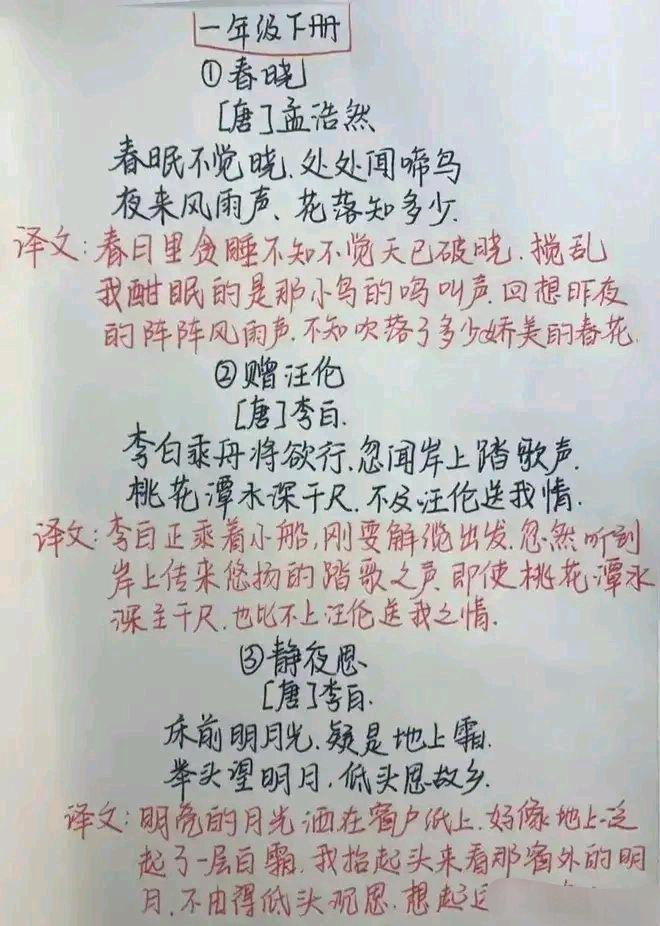 一年级下册
①春晓
[唐]孟浩然
春眠不觉晓.处处闻啼鸟
夜来风雨声、花落知多少.
译文:春日里贪睡不知不觉天已破晓.搅乱
我酣眠的是那小鸟的鸣叫声.回想昨夜
的阵阵风雨声.不知吹落了多少娇美的春花.
②赠汪伦
[唐]李白.
李白乘舟将欲行.忽闻岸上踏歌声.
桃花潭水深千尺.不及汪伦送我情.
译文:李白正乘着小船,刚要解缆出发.忽然听到
岸上传来悠扬的踏歌之声.即使桃花潭水
深至千尺.也比不上汪伦送我之情.
③静夜思
[唐]李白.
床前明月光.疑是地上霜.
举头望明月.低头思故乡.
译文:明亮的月光洒在窗户纸上.好像地上泛
起了一层白霜.我抬起头来看那窗外的明
月.不由得低头沉思.想起